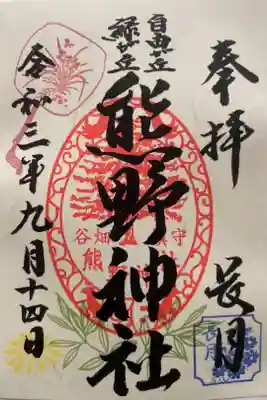 奉拝
長月
自由ヶ丘
緑が丘
熊野神社
谷畑
鎮守
熊
社
令和三年九月十四日
長月